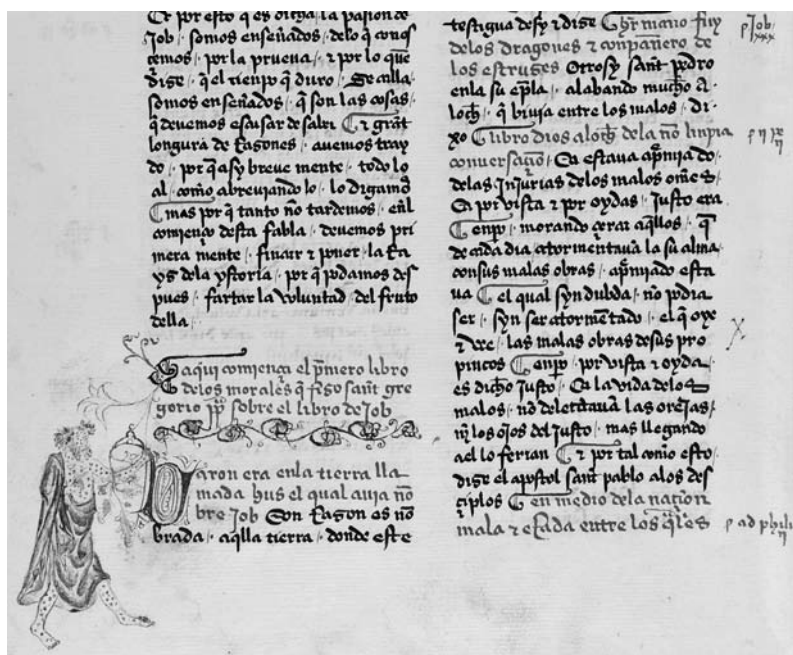 Et por esto q̃ es dicha · la pasion de
Job · somos enseñados · delo q̃ conos
çemos · por la prueva · ⁊ por lo que
dize · q̃ el tienpo q̃ duro · Se calla
somos enseñados · q̃ son las cosas
q̃ devemos escusar de sabr̃ ⁊ grãt
longura de Razones · avemos tray
do · por q̃ asy breve mente · todo lo
al · com̃o abreviando lo · lo digamos
mas por q̃ tanto ño tardemos · eñl
comienço desta fabla · devemos pri
mera mente · fincar ⁊ poner · la Ra
yz dela ystoria · por q̃ podamos des
pues · fartar la voluntad · del fruto
della
aqui comiença el p̃mero libro
delos morales q̃ fizo sant gre
gorio pp̃ sobre el libro de Job
Varon era enla tierra lla
mada hus el qual avia ño
bre Job Son Razon es ño
brada · aq̃lla tierra · donde este
testigua desy ⁊ dize hr̃mano fuy
delos dragones ⁊ conpañero de
los estruçes Otrosy sant pedro
enla su ep̃la · alabando mucho a
loth · q̃ bivia entre los malos · di
xo libro dios a loth dela ño linpia
conversaçio᷈ Ca estava ap̃miado
delas Injurias delos malos om̃es
Ca por vista ⁊ por oydas · Justo era
enp̃o · morando çerca aq̃llos · q̃
de cada dia atormentavã la su alma
con sus malas obras · ap̃miado esta
va el qual syn dubda · no podia
ser · syn ser atormẽtado · el q̃ oye
⁊ vee · las malas obras de sus pro
pincos enp̃o · por vista ⁊ oyda
es dicho Justo · Ca la vida delos
malos · no delectavã las orejas
nj̃ los ojos del Justo · mas llegando
a el lo ferian ⁊ por tal com̃o esto
dize el apostol sant pablo alos des
çiplos en medio dela naçion
mala ⁊ eRada entre los q̃les
Job
xxx
ad phili